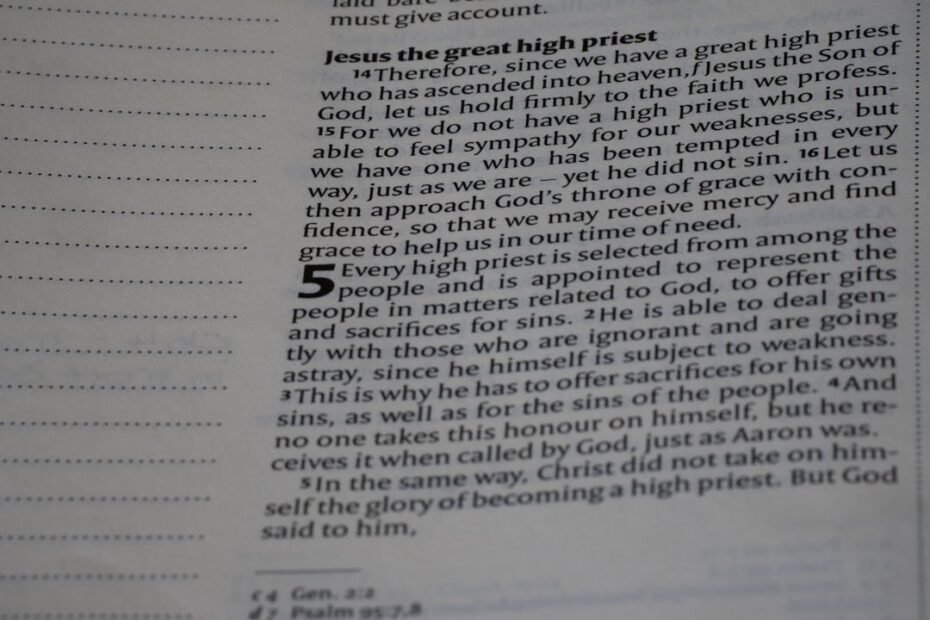 must give account.
Jesus the great high priest
14 Therefore, since we have a great high priest
who has ascended into heaven,f Jesus the Son of
God, let us hold firmly to the faith we profess.
15 For we do not have a high priest who is un-
able to feel sympathy for our weaknesses, but
we have one who has been tempted in every
way, just as we are – yet he did not sin. 16 Let us
then approach God's throne of grace with con-
fidence, so that we may receive mercy and find
grace to help us in our time of need.
5 Every high priest is selected from among the
people and is appointed to represent the
people in matters related to God, to offer gifts
and sacrifices for sins. 2 He is able to deal gen-
tly with those who are ignorant and are going
astray, since he himself is subject to weakness.
3 This is why he has to offer sacrifices for his own
sins, as well as for the sins of the people. 4 And
no one takes this honour on himself, but he re-
ceives it when called by God, just as Aaron was.
5 In the same way, Christ did not take on him-
self the glory of becoming a high priest. But God
said to him,
c 4 Gen. 2:2
d 7 Psalm 95:7,8